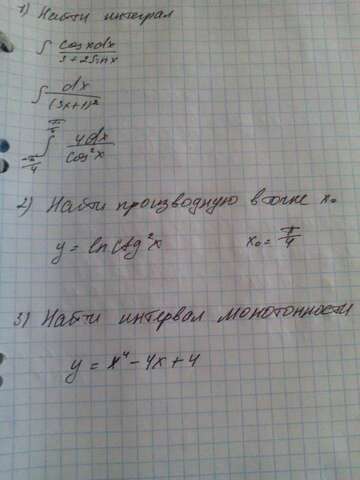 1) Найти интеграл
∫ cosxdx / 3+2sinx
∫ dx / (3x+1)²
∫ 4dx / cos²x
2) Найти производную в точке x₀
y = ln ctg²x x₀ = π/4
3) Найти интервал монотонности
y = x⁴ - 4x + 4